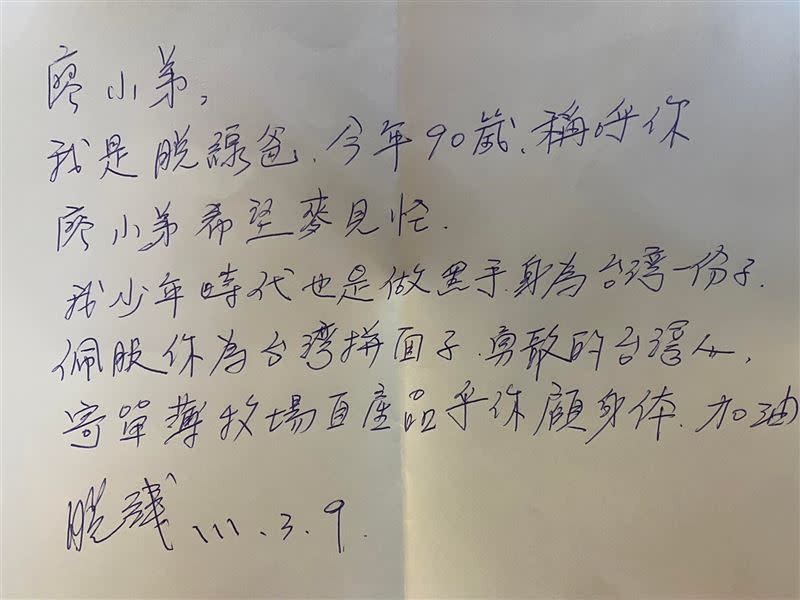 廖小弟,
我是脱線爸.今年90歲.稱呼你
廖小弟希望麥見怪.
我少年時代也是做黑手.身為台湾一份子.
佩服你為台湾拼面子.勇敢的台湾人.
寄單薄牧場自產品乎你顧身体.加油
脱線 111.3.9.